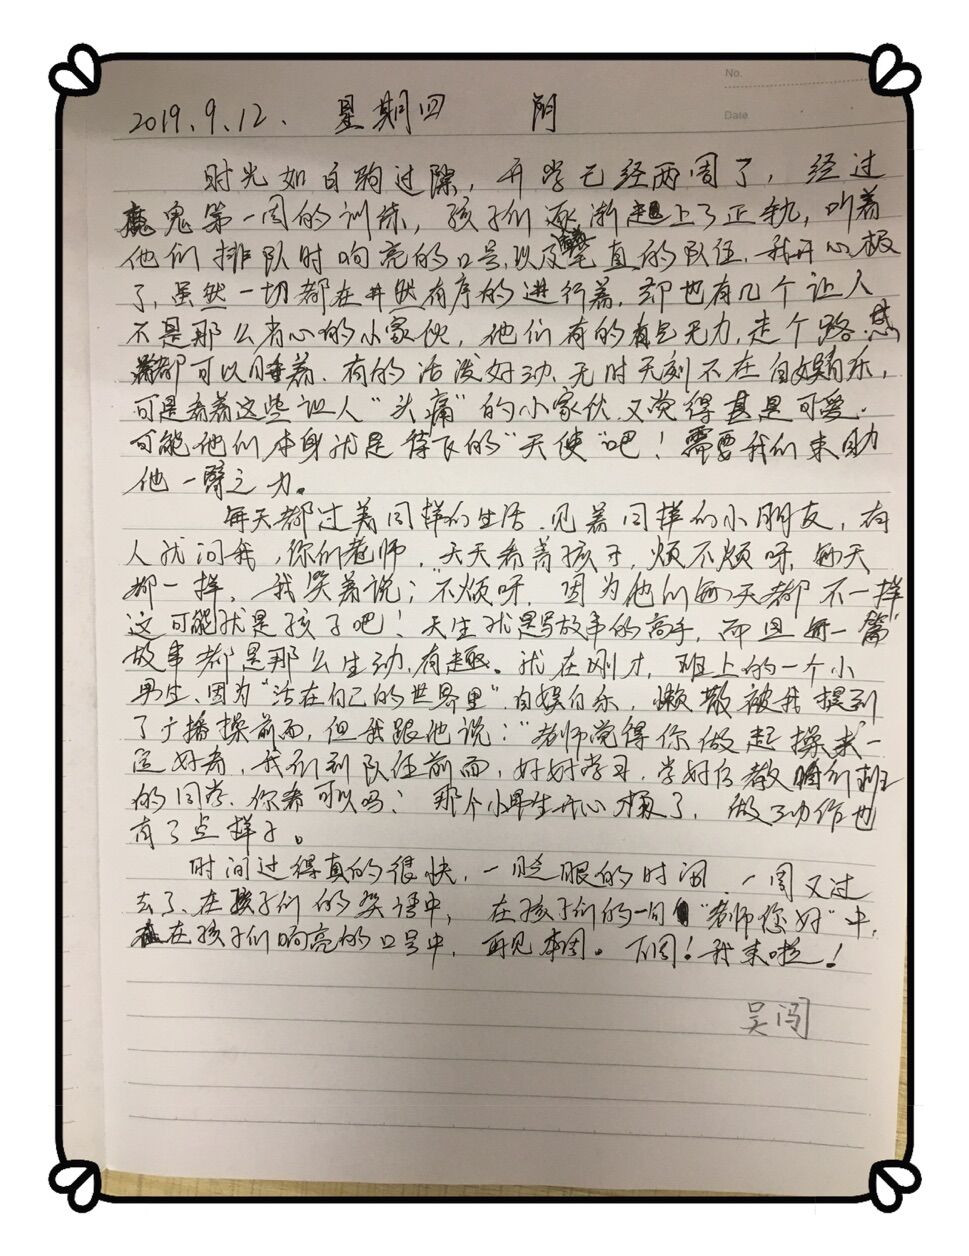 No.
Date
2019.9.12. 星期四 阴
时光如白驹过隙，开学已经两周了，经过
魔鬼第一周的训练，孩子们逐渐赶上了正轨，听着
他们排队时响亮的口号,以及笔直的队伍,我开心极
了,虽然一切都在井然有序的进行着,却也有几个让人
不是那么省心的小家伙,他们有的有气无力,走个路,感
都可以睡着.有的活泼好动、无时无刻不在自娱自乐,
可是看着这些让人“头痛”的小家伙,又觉得甚是可爱.
可能他们本身就是落下的“天使”吧！需要我们来助
他一臂之力。
每天都过着同样的生活.见着同样的小朋友,有
人就问我,你们老师,天天看着孩子,烦不烦呀,每天
都一样,我笑着说;“不烦呀,因为他们每天都不一样”
这可能就是孩子吧!天生就是写故事的高手,而且每一篇
故事都是那么生动,有趣。就在刚才,班上的一个小
男生、因为“活在自己的世界里”自娱自乐,懒散被我提到
了广播操前面,但我跟他说:“老师觉得你做起操来一
定好看,我们到队伍前面,好好学习,学好后教咱们班
的同学,你看可以吗?那个小男生开心极了,做了动作也
有了点样子。
时间过得真的很快,一眨眼的时间,一周又过
去了,在孩子们的笑语中,在孩子们的一句“老师您好”中,
在孩子们响亮的口号中,再见本周。下周!我来啦!
吴闯